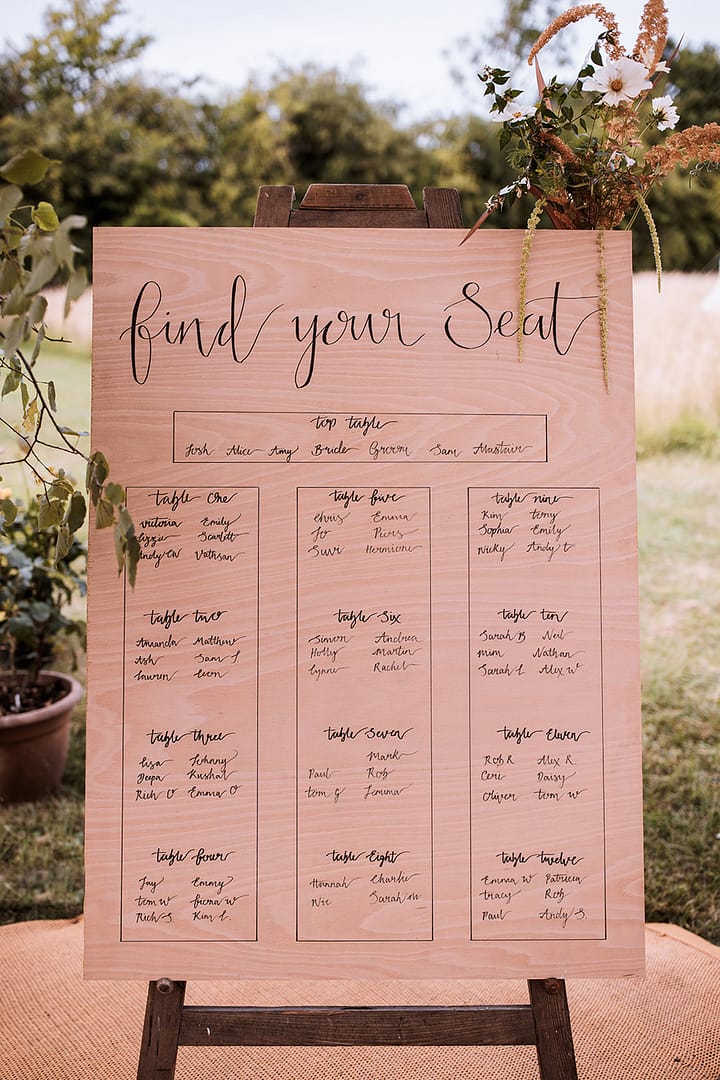 find your Seat
top table
Josh Alice Amy Bride Groom Sam Alastair
table one
Victoria Emily
Lizzie Scarlett
Andy
table two
Amanda Matthew
Ash Sam J.
Lauren Leon
table three
Lisa Johnny
Deepa Kushal
Rich O Emma O
table four
Jay Emmy
tom W Fiona W
Rich S. Kim L.
table five
Chris Emma
Jo Piers
Suvi Hermione
table Six
Simon Andrea
Holly Martin
Lynne Rachel
table Seven
Mark
Paul Rob
tom G Jemma
table Eight
Hannah Charlie
Nic Sarah M
table nine
Kim tony
Sophia Emily
Nicky Andy t
table ten
Sarah B Neil
mim Nathan
Sarah L Alex W
table Eleven
Rob R Alex R
Ceri Daisy
Oliver tom W
table twelve
Emma W Patricia
tracy Rob
Paul Andy S.